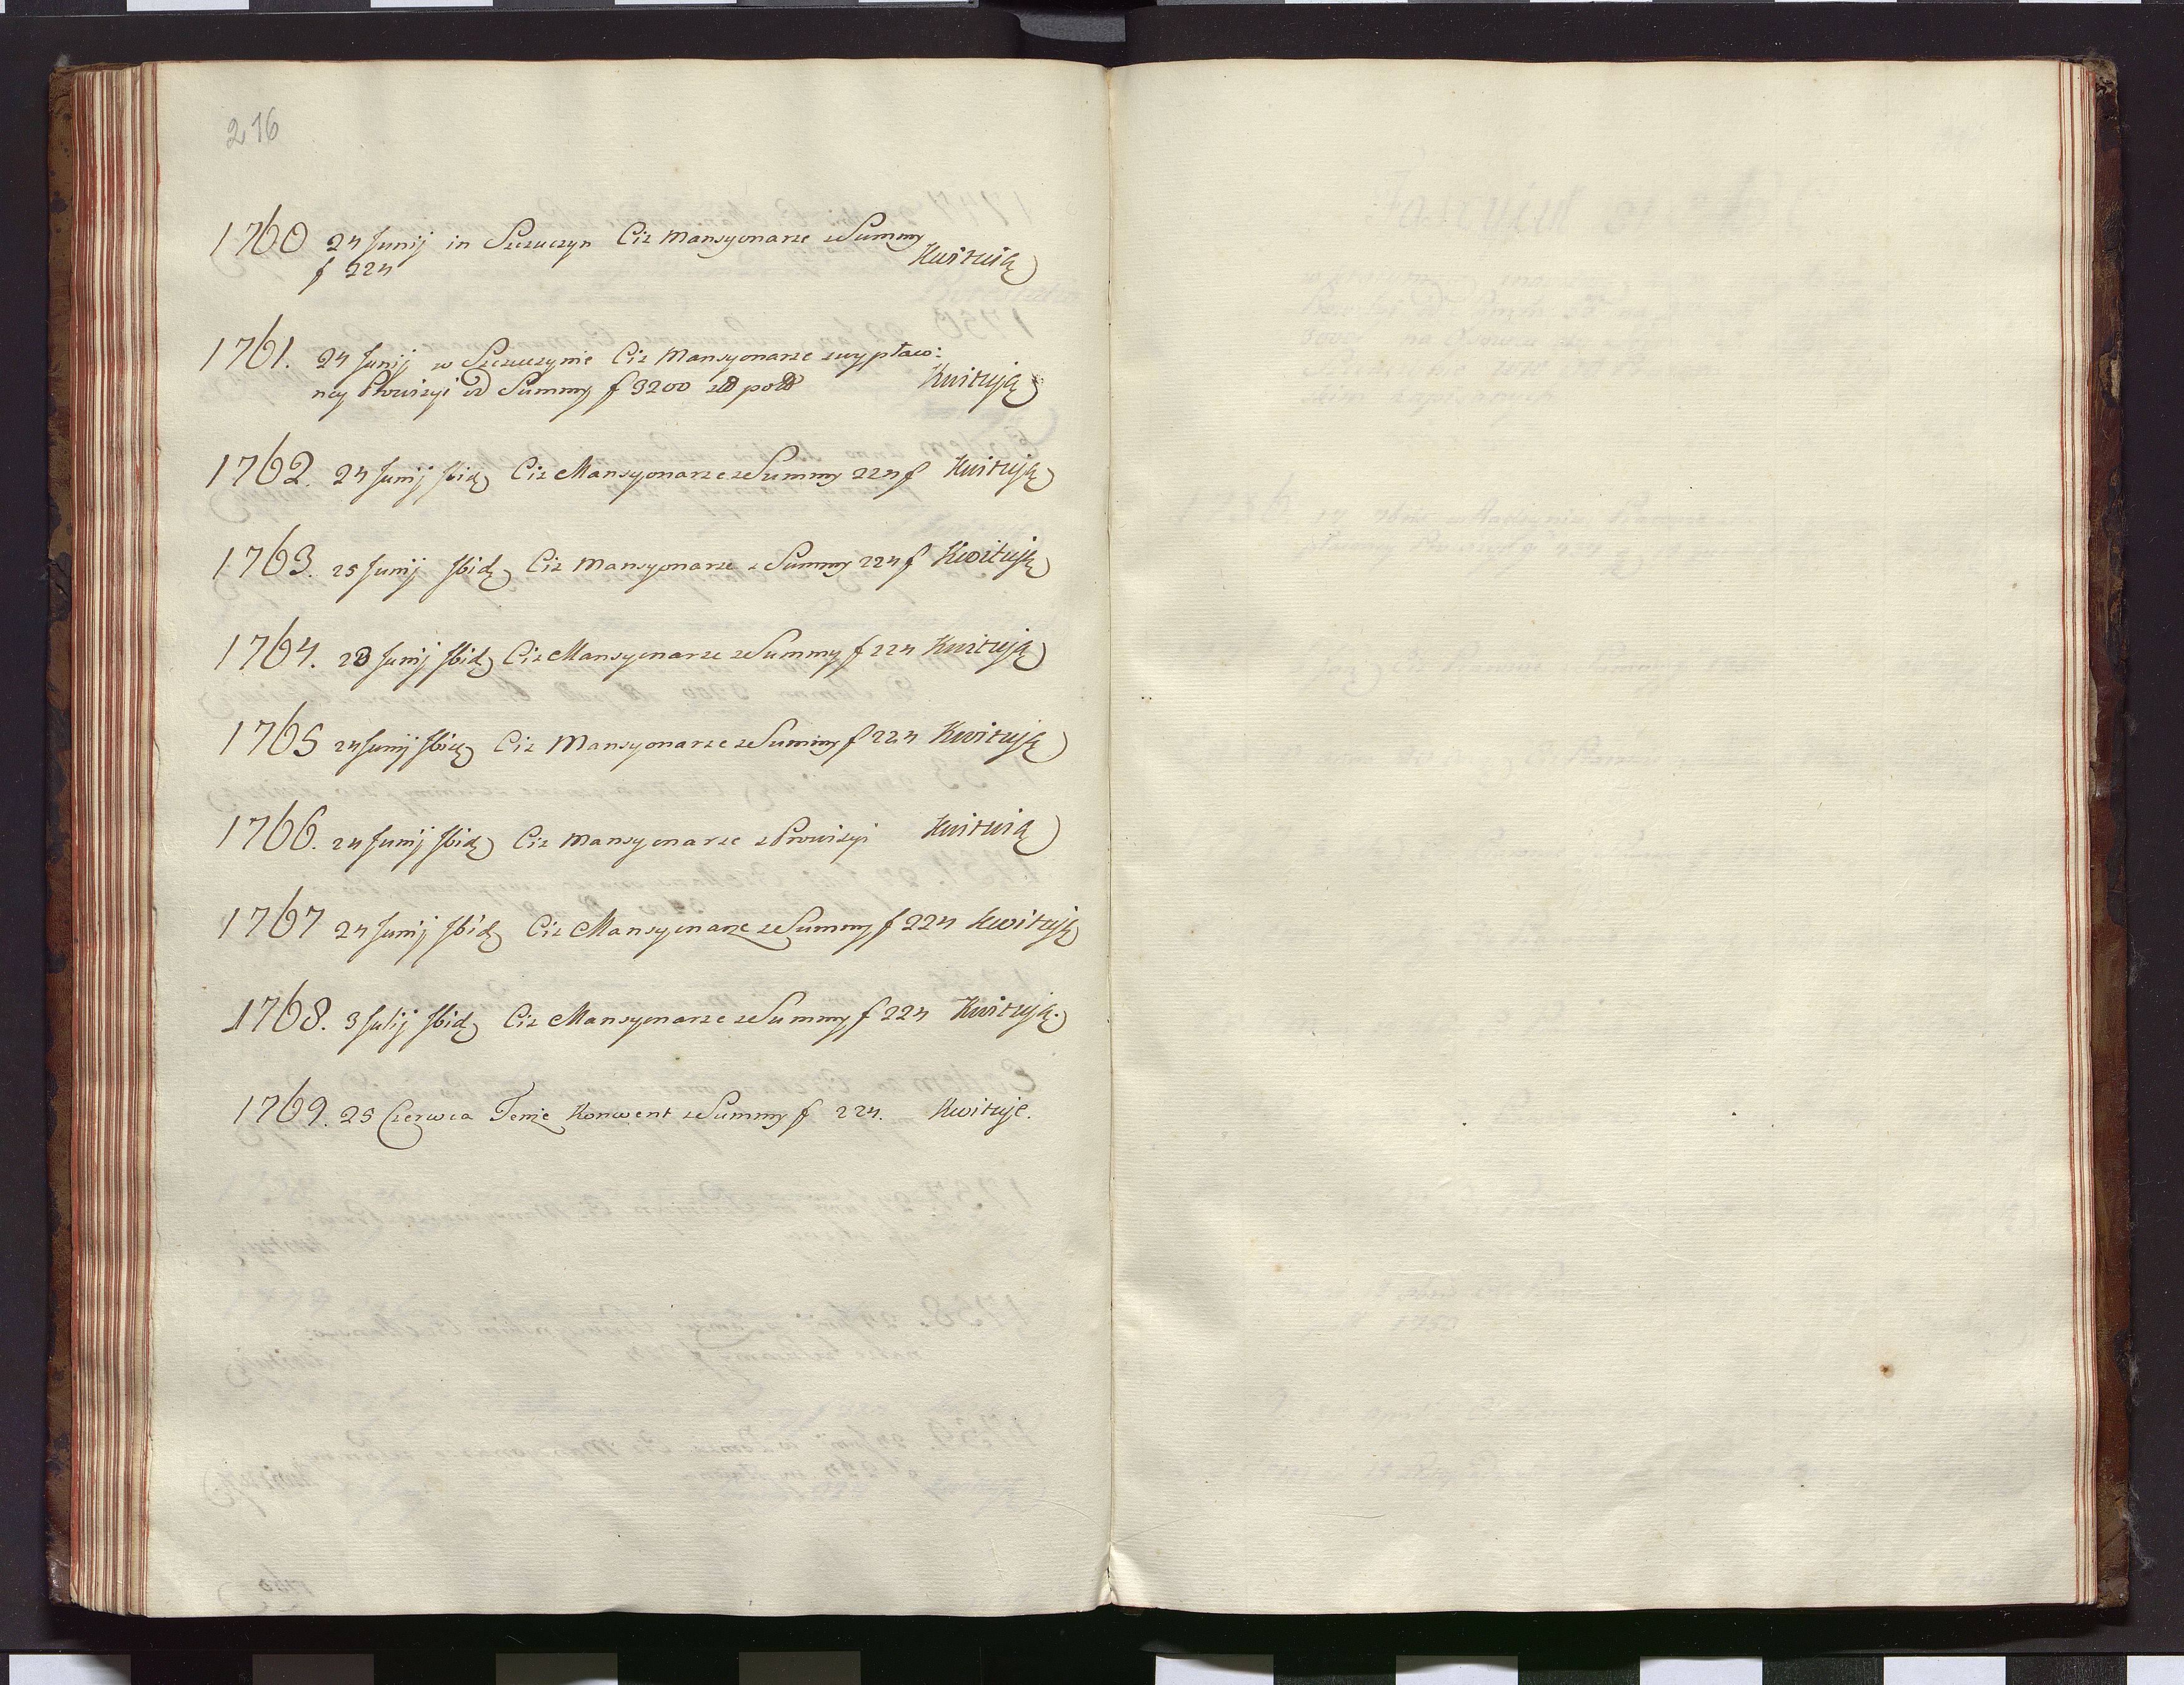 216
1760 24 Junij in Szczuczyn Ciż Mansyonarze z Summy
f 224 Kwituią
1761. 24 Junij w Szczuczynie Ciż Mansyonarze z wypłaco:
ney Prowizyi od Summy f 3200 Kwitują
1762. 24 Junij Ibid Ciż Mansyonarze z Summy 224 f Kwitują
1763. 25 Junij Ibid Ciż Mansyonarze z Summy 224 f Kwitują
1764. 28 Junij Ibid Ciż Mansyonarze z Summy f 224 Kwitują
1765 24 Junij Ibid Ciż Mansyonarze z Summy f 224 Kwitują
1766. 24 Junij Ibid Ciż Mansyonarze z Prowizyi Kwituią
1767 24 Junij Ibid Ciż Mansyonarze z Summy f 224 Kwitują
1768. 3 Julij Ibid Ciż Mansyonarze z Summy f 224 Kwitują.
1769. 25 Czerwca Tenże Konwent z Summy f 224. Kwituje.